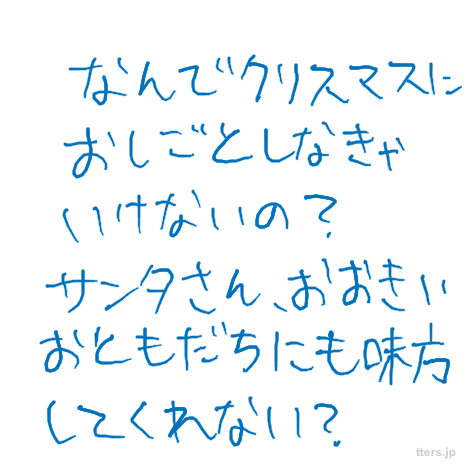 なんでクリスマスに
おしごとしなきゃ
いけないの？
サンタさん、おおきい
おともだちにも味方
してくれない？
tters.jp